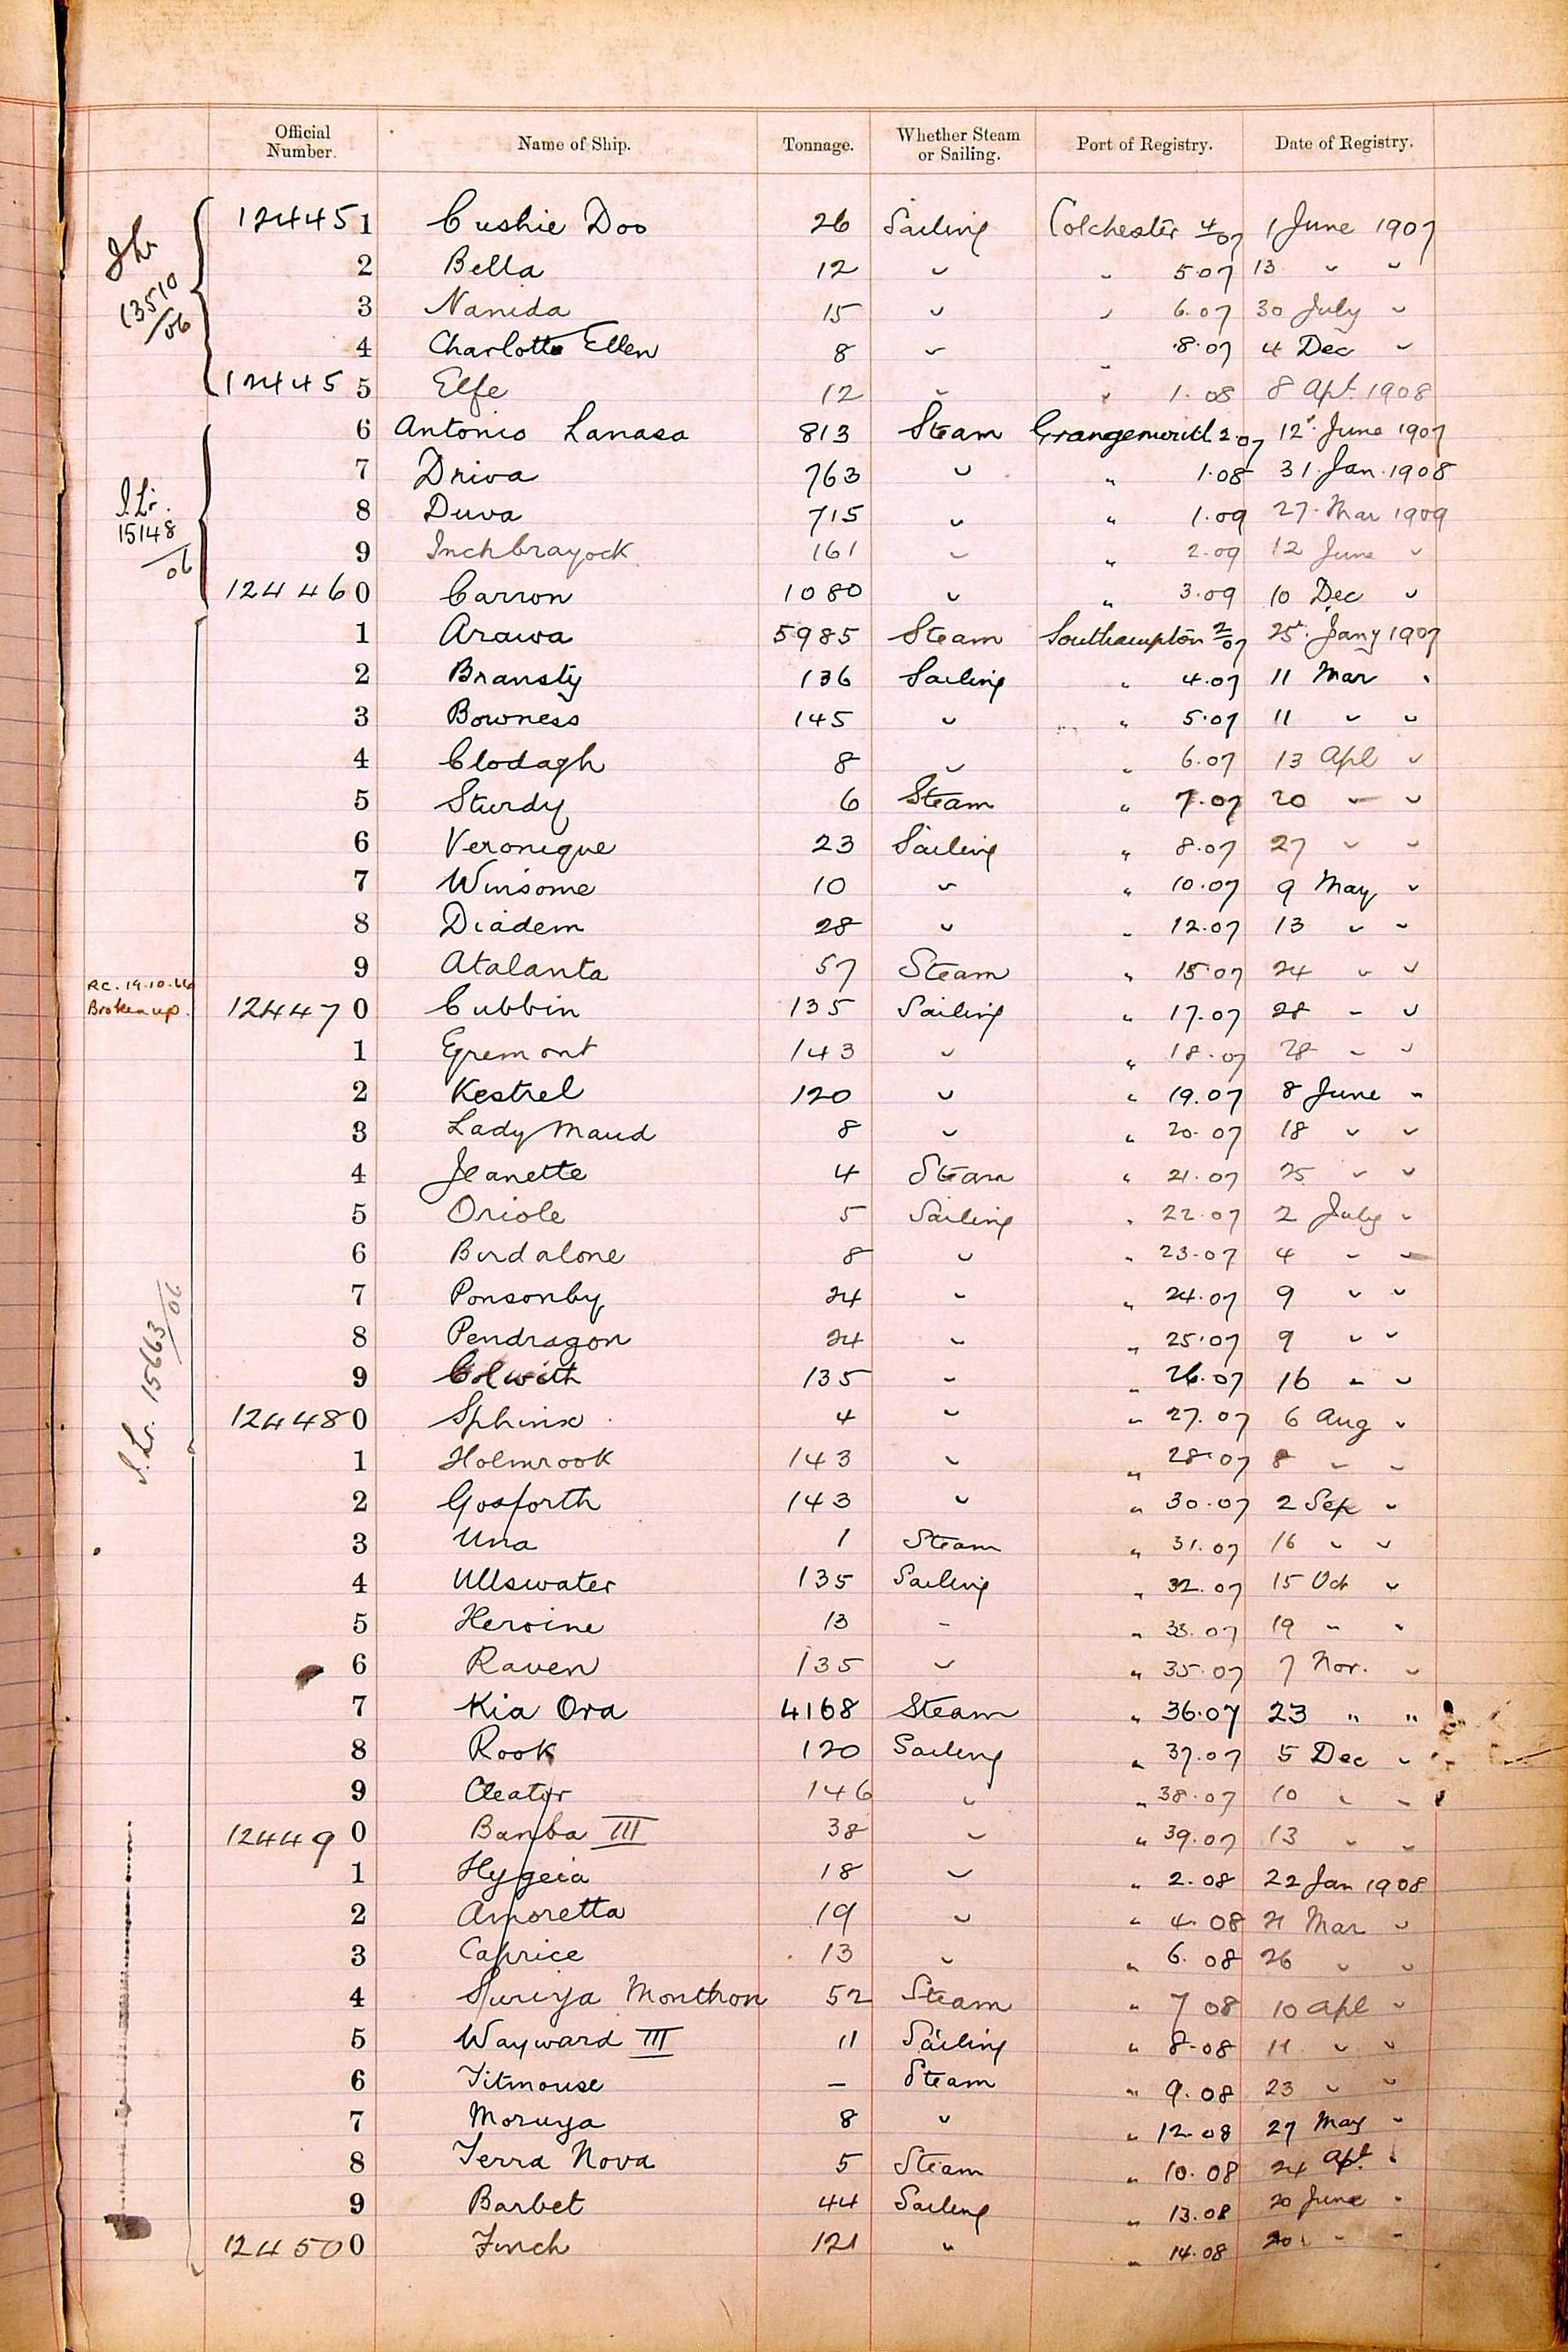 Official Number. Name of Ship. Tonnage. Whether Steam or Sailing. Port of Registry. Date of Registry.
13510/06
124451 Cushie Doo 26 Sailing Colchester 4/07 1 June 1907
2 Bella 12 " " 5.07 13 " "
3 Nanida 15 " " 6.07 30 July "
4 Charlotte Ellen 8 " " 8.07 4 Dec "
124455 Elfe 12 " " 1.08 8 Apl. 1908
6 Antonio Lanasa 813 Steam Grangemouth 2.07 12 June 1907
7 Driva 763 " " 1.08 31 Jan. 1908
15148/06
8 Duva 715 " " 1.09 27 Mar 1909
9 Inchbrayock 161 " " 2.09 12 June "
124460 Carron 1080 " " 3.09 10 Dec "
1 Arawa 5985 Steam Southampton 2/07 25 Jany 1907
2 Bransty 136 Sailing " 4.07 11 Mar "
3 Bowness 145 " " 5.07 11 " "
4 Clodagh 8 " " 6.07 13 Apl "
5 Sturdy 6 Steam " 7.07 20 " "
6 Veronique 23 Sailing " 8.07 27 " "
7 Winsome 10 " " 10.07 9 May "
8 Diadem 28 " " 12.07 13 " "
9 Atalanta 57 Steam " 15.07 24 " "
RC. 19.10.
Broken up. 124470 Cubbin 135 Sailing " 17.07 28 " "
1 Egremont 143 " " 18.07 28 " "
2 Kestrel 120 " " 19.07 8 June "
3 Lady Maud 8 " " 20.07 18 " "
4 Jeanette 4 Steam " 21.07 25 " "
5 Oriole 5 Sailing " 22.07 2 July "
6 Birdalone 8 " " 23.07 4 " "
7 Ponsonby 24 " " 24.07 9 " "
8 Pendragon 24 " " 25.07 9 " "
15663/06
9 Colwith 135 " " 26.07 16 " "
124480 Sphinx 4 " " 27.07 6 Aug "
1 Holmrook 143 " " 28.07 8 " "
2 Gosforth 143 " " 30.07 2 Sep "
3 Una 1 Steam " 31.07 16 " "
4 Ullswater 135 Sailing " 32.07 15 Oct "
5 Heroine 13 " " 33.07 19 " "
6 Raven 135 " " 35.07 7 Nov. "
7 Kia Ora 4168 Steam " 36.07 23 " "
8 Rook 120 Sailing " 37.07 5 Dec "
9 Cleator 146 " " 38.07 10 " "
124490 Banba III 38 " " 39.07 13 " "
1 Hygeia 18 " " 2.08 22 Jan 1908
2 Amoretta 19 " " 4.08 21 Mar "
3 Caprice 13 " " 6.08 26 " "
4 Suriya Monthon 52 Steam " 7 08 10 Apl "
5 Wayward III 11 Sailing " 8.08 11 " "
6 Titmouse — Steam " 9.08 23 " "
7 Moruya 8 " " 12.08 27 May "
8 Terra Nova 5 Steam " 10.08 24 Apl "
9 Barbet 44 Sailing " 13.08 20 June "
124500 Finch 121 " " 14.08 20 " "